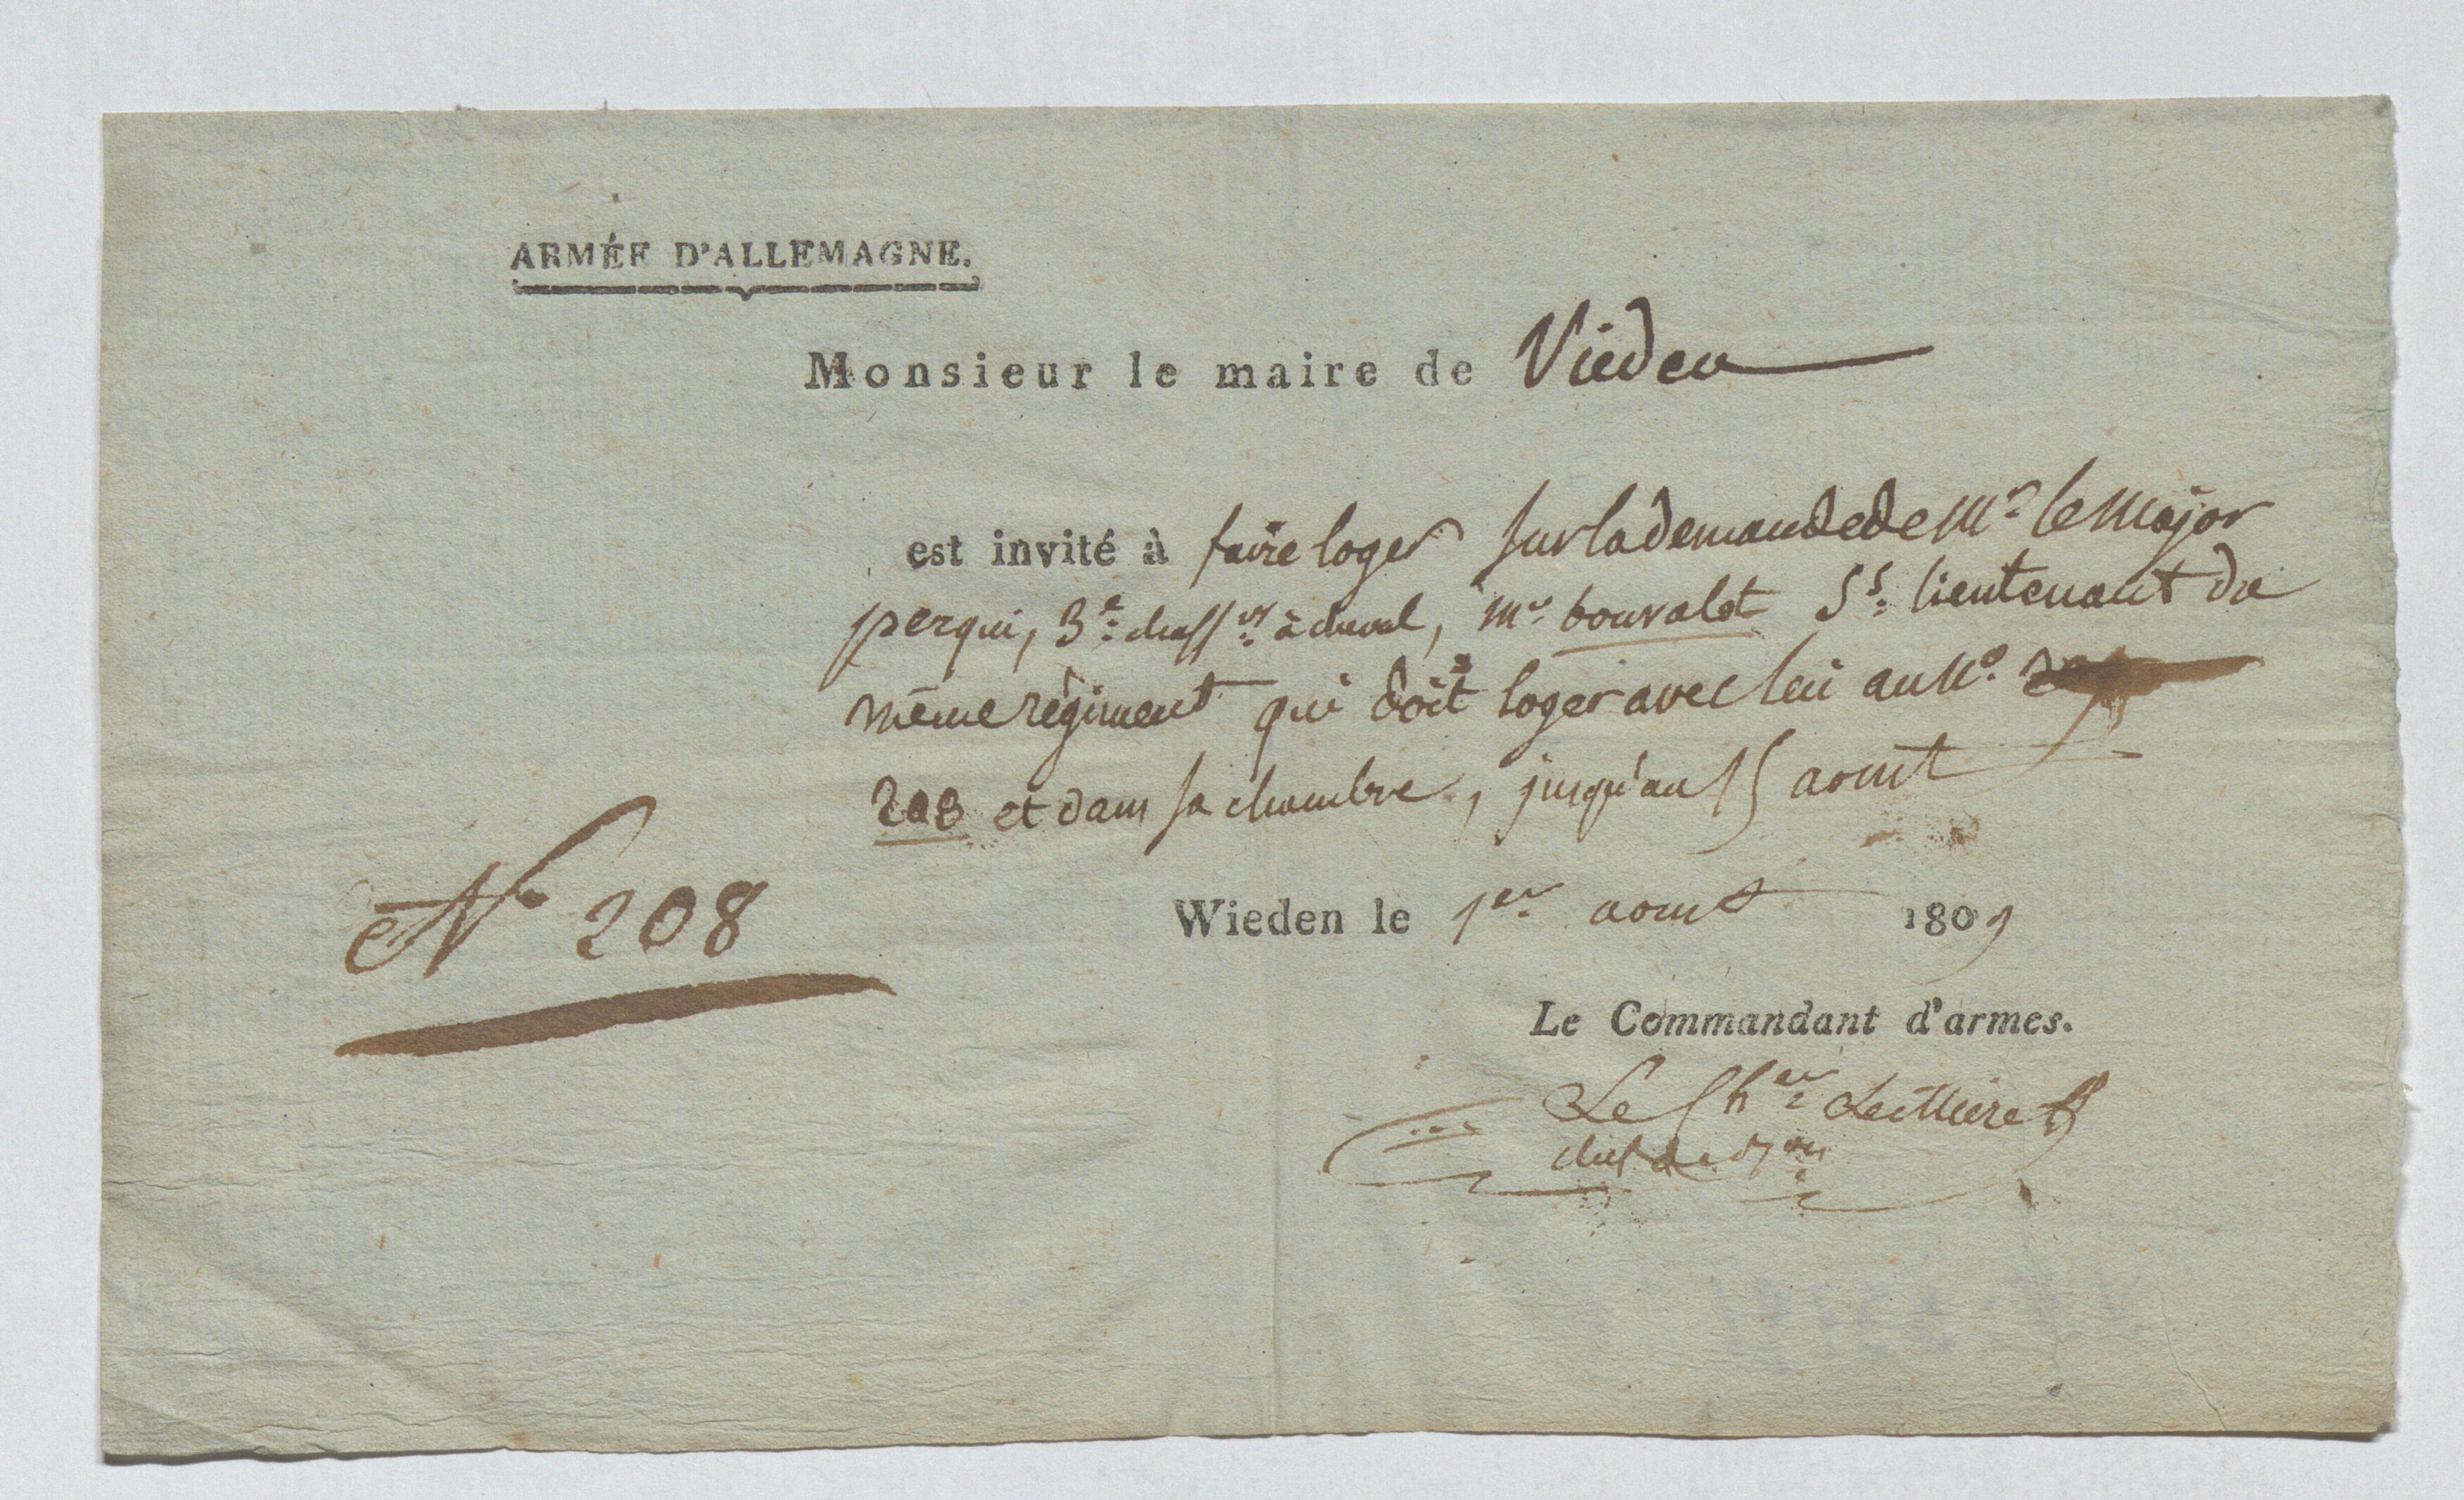 ARMÉE D'ALLEMAGNE.
Monsieur le maire de Vieden
est invité à faire loger sur la demande de Mr le Major
perqui, 3e chassrs à cheval, mr bouvalet Ss lieutenant du
même régiment qui doit loger avec lui au No
208 et dans sa chambre, jusqu'au 15 aoust
No 208
Wieden le 1er aoust 1809
Le Commandant d'armes.
Le Cher
chef de